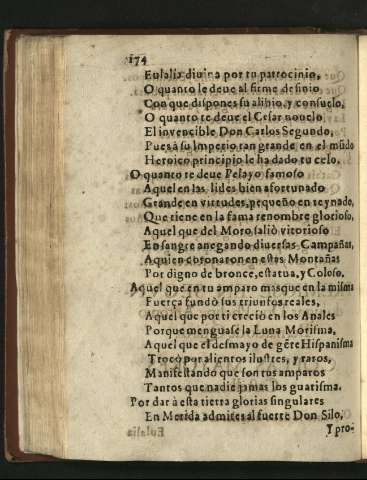 174
Eulalia diuina por tu patrocinio,
O quanto le deue al firme desinio
Con que dispones su alibio, y consuelo,
O quanto te deue el Cesar nouelo
El invencible Don Carlos Segundo,
Pues à su Imperio tan grande en el mũdo
Heroico principio le ha dado tu celo.
O quanto te deue Pelayo famoso
Aquel en las lides bien afortunado
Grande en virtudes, pequeño en reynado,
Que tiene en la fama renombre glorioso,
Aquel que del Moro saliò vitorioso
En sangre anegando diuersas Campañas,
A quien coronaron en estas Montañas
Por digno de bronce, estatua, y Coloso.
Aquel que en tu amparo mas que en la misma
Fuerça fundò sus triunfos reales,
Aquel que por ti creciò en los Anales
Porque menguase la Luna Morisma,
Aquel que el desmayo de gẽte Hispanisma
Trocò por alientos ilustres, y raros,
Manifestando que son tus amparos
Tantos que nadie jamas los guarisma.
Por dar à esta tierra glorias singulares
En Merida admites al fuerte Don Silo,
Y pro-